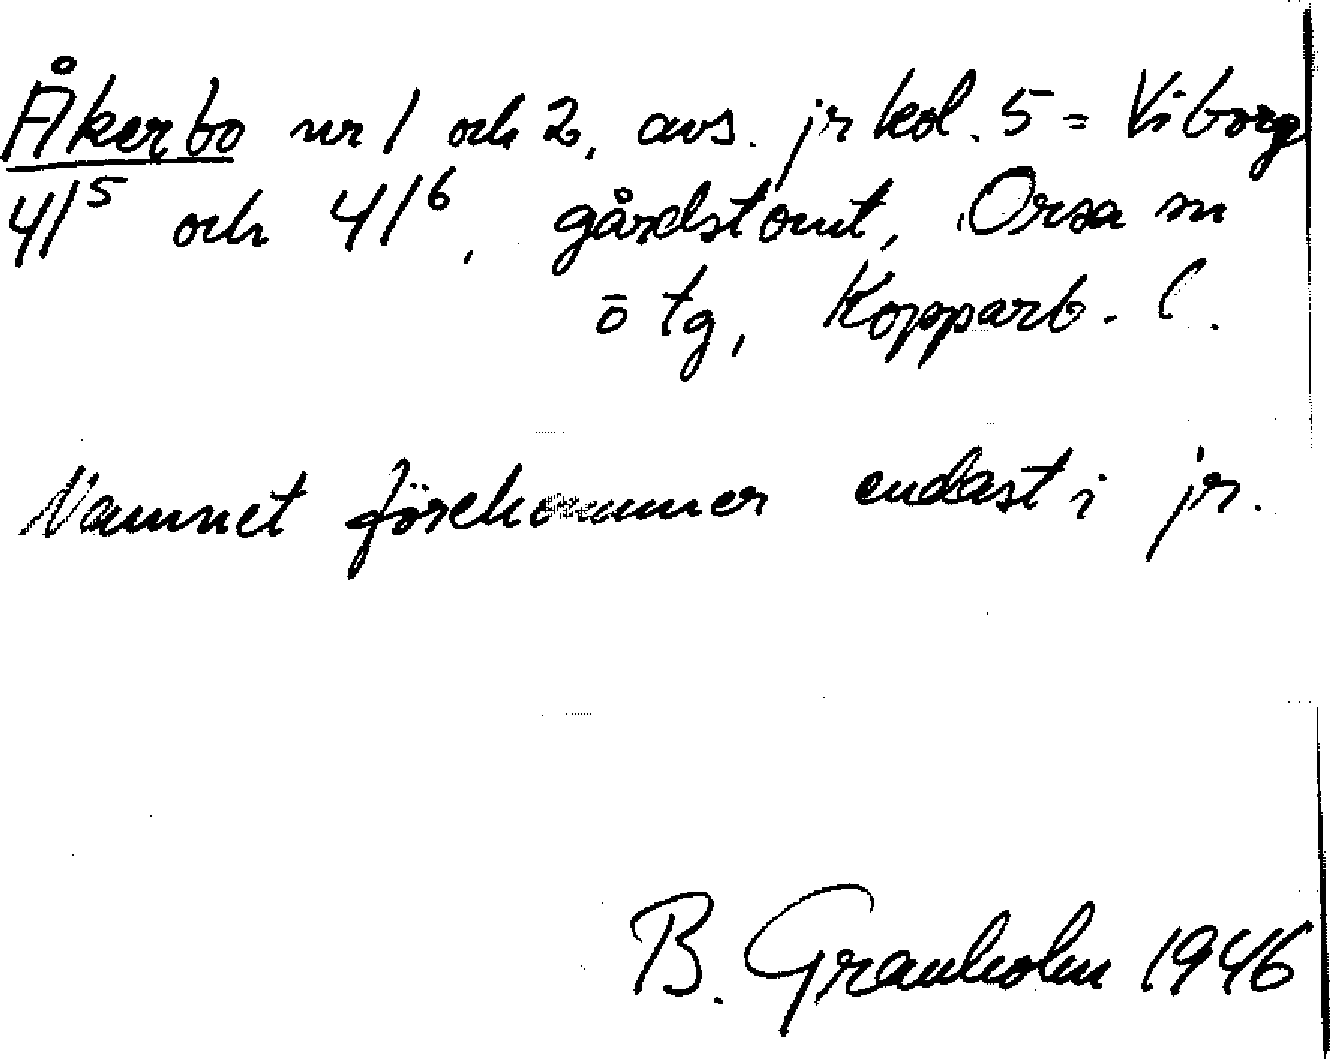 Åkerbo nr 1 och 2, avs. jr kol. 5 = Viborg
4/5 och 4/6, gårdstomt, Orsa sn
o tg, Kopparb. l.
Namnet förekommer endast i jr.
B. Granholm 1946